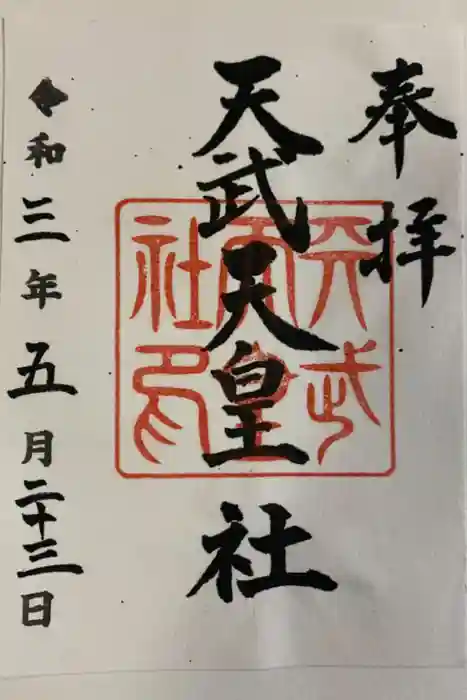 奉拝
天武天皇社
天武
天皇
社印
令和三年五月二十三日